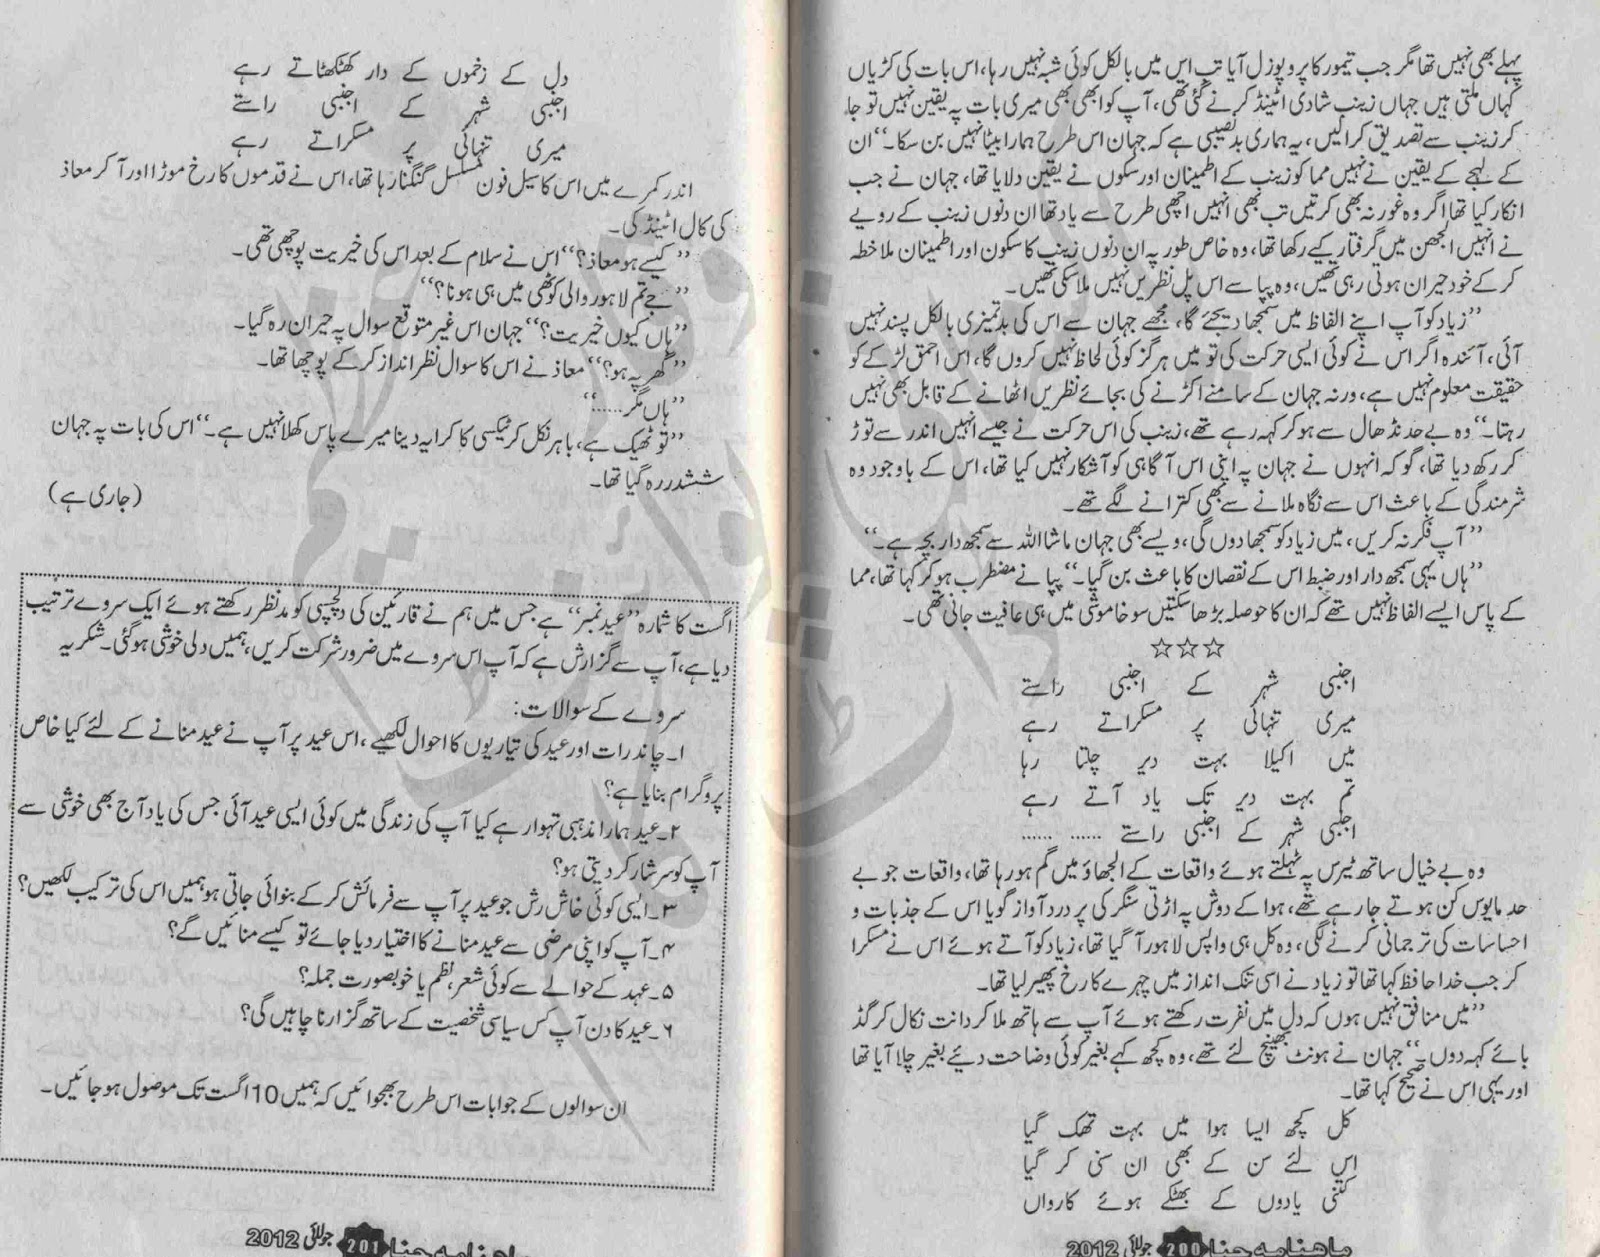 پہلے بھی نہیں تھا مگر جب تیمور کا پروپوزل آیا تب اس میں بالکل کوئی شبہ نہیں رہا، اس بات کی کڑیاں
کہاں ملتی ہیں جہاں زینب شادی اٹینڈ کرنے گئی تھی، آپ کو ابھی بھی میری بات پہ یقین نہیں تو جا
کر زینب سے تصدیق کرالیں، یہ ہماری بدنصیبی ہے کہ جہان اس طرح ہمارا بیٹا نہیں بن سکا۔“ ان
کے لہجے کے یقین نے نہیں مما کو زینب کے اطمینان اور سکون نے یقین دلایا تھا، جہان نے جب
انکار کیا تھا اگر وہ غور نہ بھی کرتیں تب بھی انہیں اچھی طرح سے یاد تھا ان دنوں زینب کے رویے
نے انہیں الجھن میں گرفتار کیے رکھا تھا، وہ خاص طور پہ ان دنوں زینب کا سکون اور اطمینان ملاخطہ
کر کے خود حیران ہوتی رہی تھیں، وہ پپا سے اس پل نظریں نہیں ملا سکی تھیں۔
”زیاد کو آپ اپنے الفاظ میں سمجھا دیجئے گا، مجھے جہان سے اس کی بدتمیزی بالکل پسند نہیں
آئی، آئندہ اگر اس نے کوئی ایسی حرکت کی تو میں ہرگز کوئی لحاظ نہیں کروں گا، اس احمق لڑکے کو
حقیقت معلوم نہیں ہے، ورنہ جہان کے سامنے اکڑنے کی بجائے نظریں اٹھانے کے قابل بھی نہیں
رہتا۔“ وہ بے حد نڈھال سے ہو کر کہہ رہے تھے، زینب کی اس حرکت نے جیسے انہیں اندر سے توڑ
کر رکھ دیا تھا، گو کہ انہوں نے جہان پہ اپنی اس آگاہی کو آشکار نہیں کیا تھا، اس کے باوجود وہ
شرمندگی کے باعث اس سے نگاہ ملانے سے بھی کترانے لگے تھے۔
”آپ فکر نہ کریں، میں زیاد کو سمجھا دوں گی، ویسے بھی جہان ماشا اللہ سے سمجھ دار بچہ ہے۔“
”ہاں یہی سمجھ دار اور ضبط اس کے نقصان کا باعث بن گیا۔“ پپا نے مضطرب ہو کر کہا تھا، مما
کے پاس ایسے الفاظ نہیں تھے کہ ان کا حوصلہ بڑھا سکتیں سو خاموشی میں ہی عافیت جانی تھی۔
☆☆☆
اجنبی شہر کے اجنبی راستے
میری تنہائی پر مسکراتے رہے
میں اکیلا بہت دیر چلتا رہا
تم بہت دیر تک یاد آتے رہے
اجنبی شہر کے اجنبی راستے ...... ......
وہ بے خیال ساتھ ٹیرس پہ ٹہلتے ہوئے واقعات کے الجھاؤ میں گم ہو رہا تھا، واقعات جو بے
حد مایوس کن ہوتے جا رہے تھے، ہوا کے دوش پہ اڑتی سنگر کی پر درد آواز گویا اس کے جذبات و
احساسات کی ترجمانی کرنے لگی، وہ کل ہی واپس لاہور آ گیا تھا، زیاد کو آتے ہوئے اس نے مسکرا
کر جب خدا حافظ کہا تھا تو زیاد نے اسی تنک انداز میں چہرے کا رخ پھیر لیا تھا۔
”میں منافق نہیں ہوں کہ دل میں نفرت رکھتے ہوئے آپ سے ہاتھ ملا کر دانت نکال کر گڈ
بائے کہہ دوں۔“ جہان نے ہونٹ بھینچ لئے تھے، وہ کچھ کہے بغیر کوئی وضاحت دیئے بغیر چلا آیا تھا
اور یہی اس نے صحیح کہا تھا۔
کل کچھ ایسا ہوا میں بہت تھک گیا
اس لئے سن کے بھی ان سنی کر گیا
کتنی یادوں کے بھٹکے ہوئے کارواں
ماہنامہ حنا 200 جولائی 2012
دل کے زخموں کے دار کھٹکھٹاتے رہے
اجنبی شہر کے اجنبی راستے
میری تنہائی پر مسکراتے رہے
اندر کمرے میں اس کا سیل فون مسلسل گنگنا رہا تھا، اس نے قدموں کا رخ موڑا اور آ کر معاذ
کی کال اٹینڈ کی۔
”کیسے ہو معاذ؟“ اس نے سلام کے بعد اس کی خیریت پوچھی تھی۔
”جے تم لاہور والی کوٹھی میں ہی ہونا؟“
”ہاں کیوں خیریت؟“ جہان اس غیر متوقع سوال پہ حیران رہ گیا۔
”گھر پہ ہو؟“ معاذ نے اس کا سوال نظر انداز کر کے پوچھا تھا۔
”ہاں مگر......“
”تو ٹھیک ہے، باہر نکل کر ٹیکسی کا کرایہ دینا میرے پاس کھلا نہیں ہے۔“ اس کی بات پہ جہان
ششدر رہ گیا تھا۔
(جاری ہے)
اگست کا شمارہ ”عید نمبر“ ہے جس میں ہم نے قارئین کی دلچسپی کو مدنظر رکھتے ہوئے ایک سروے ترتیب
دیا ہے، آپ سے گزارش ہے کہ آپ اس سروے میں ضرور شرکت کریں، ہمیں دلی خوشی ہوگئی۔ شکریہ
سروے کے سوالات:
۱۔ چاند رات اور عید کی تیاریوں کا احوال لکھیے، اس عید پر آپ نے عید منانے کے لئے کیا خاص
پروگرام بنایا ہے؟
۲۔ عید ہمارا مذہبی تہوار ہے کیا آپ کی زندگی میں کوئی ایسی عید آئی جس کی یاد آج بھی خوشی سے
آپ کو سرشار کر دیتی ہو؟
۳۔ ایسی کوئی خاش رش جو عید پر آپ سے فرمائش کر کے بنوائی جاتی ہو ہمیں اس کی ترکیب لکھیں؟
۴۔ آپ کو اپنی مرضی سے عید منانے کا اختیار دیا جائے تو کیسے منائیں گے؟
۵۔ عہد کے حوالے سے کوئی شعر، نظم یا خوبصورت جملہ؟
۶۔ عید کا دن آپ کس سیاسی شخصیت کے ساتھ گزارنا چاہیں گی؟
ان سوالوں کے جوابات اس طرح بھجوائیں کہ ہمیں 10 اگست تک موصول ہو جائیں۔
ماہنامہ حنا 201 جولائی 2012